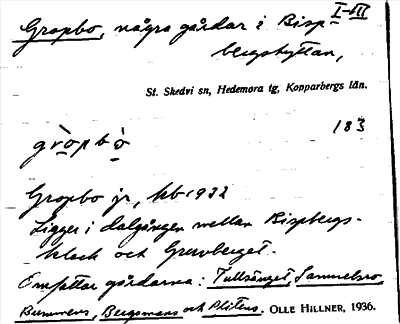 Gropbo, några gårdar i Bisp- I-III
bergshyttan,
St. Skedvi sn, Hedemora tg, Kopparbergs län.
183
gròpbò
Gropbo jr, hb 1922
Ligger i dalgången mellan Bispbergs-
klack och Gruvberget.
Omfattar gårdarna: Tullsänget, Sammelsro,
Bummens, Bergsmans och Plitens. OLLE HILLNER, 1936.